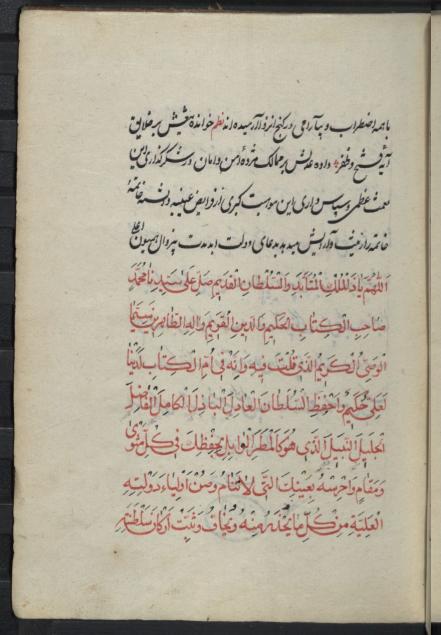 با همه اضطراب و بی‌آرامی در کنج انزوا آرمیده‌اند نظم خوانده تیغش بر خلایق
آیه فتح و ظفر داده عدلش بر ممالک مژدهٔ امن و امان در شکرگذاری این
نعمت عظمی و سپاس‌داری این موهبت کبری از فرایض عینیه دانسته خاتمهٔ
خاتمه را زینت و آرایش میدهد بدعای دولت ابدمدت بیزوال همیون اعلی
اللهم یا ذا الملک المتأبد والسلطان القدیم صل علی سیدنا محمد
صاحب الکتاب الحکیم والدین القویم واله الطاهرین سیما
الوصی الکریم الذی قلت فیه وانه فی ام الکتاب لدینا
لعلی حکیم واحفظ السلطان العادل الباذل الکامل الفاضل
الجلیل النبیل الذی هو کالمطر الوابل بحفظک فی کل مثوی
ومقام واحرسه بعینک التی لا تنام وصن اولیاء دولته
العلیة من کل ما یحذر منه ویخاف وثبت ارکان سلطنته